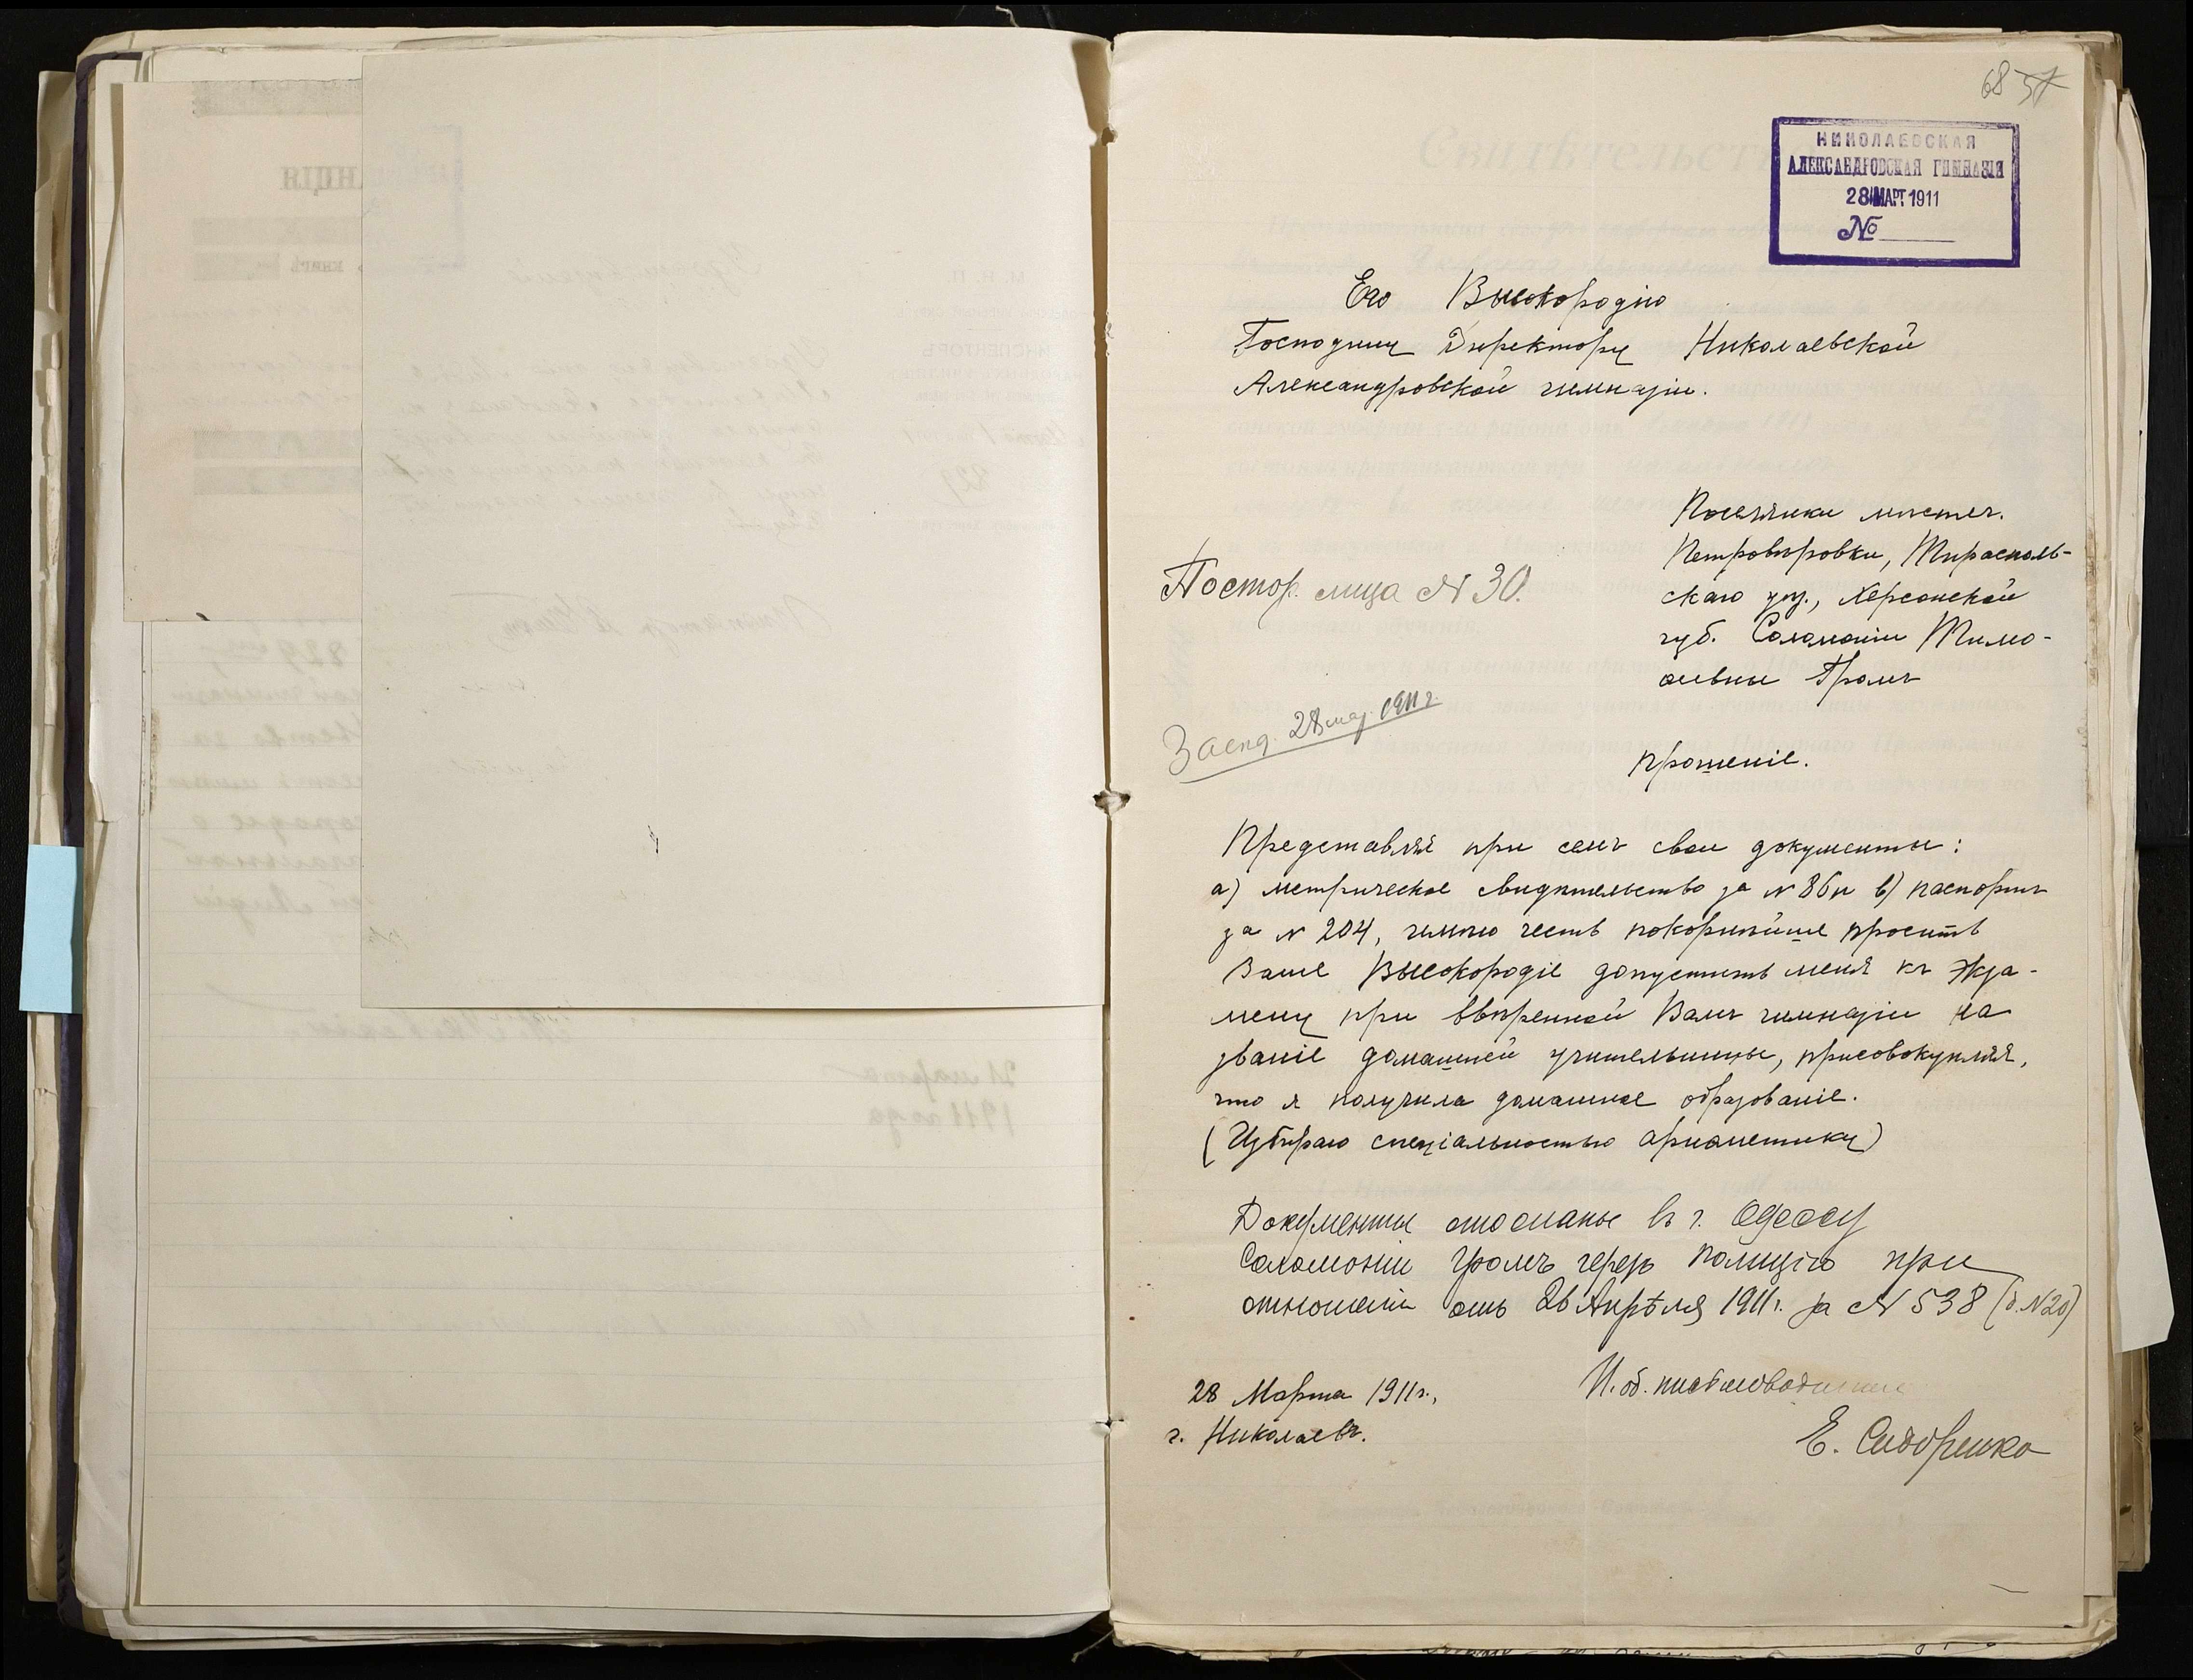 68 57
НИКОЛАЕВСКАЯ
АЛЕКСАНДРОВСКАЯ ГИМНАЗІЯ
28 МАРТ 1911
№
Его Высокородію
Господину Директору Николаевской
Александровской гимназіи.
Поселянки мѣстеч.
Петровѣровки, Тирасполь-
скаго уѣз., Херсонской
губ. Соломоніи Тимо-
ѳеевны Громъ
Постор. лица № 30.
Засѣд. 28 мар. 1911 г.
Прошеніе.
Представляя при семъ свои документы:
а) метрическое свидѣтельство за № 86 и в) паспортъ
за № 204, имѣю честь покорнѣйше просить
Ваше Высокородіе допустить меня къ экза-
мену при ввѣренной Вамъ гимназіи на
званіе домашней учительницы, присовокупляя,
что я получила домашнее образованіе.
(Избираю спеціальностью ариѳметику)
Документы отосланы въ г. Одессу
Соломоніи Громъ черезъ полицію при
отношеніи отъ 26 Апрѣля 1911 г. за № 538 (д. № 20)
28 Марта 1911 г.,
г. Николаевъ.
И. об. письмоводителя
Е. Сидоренко